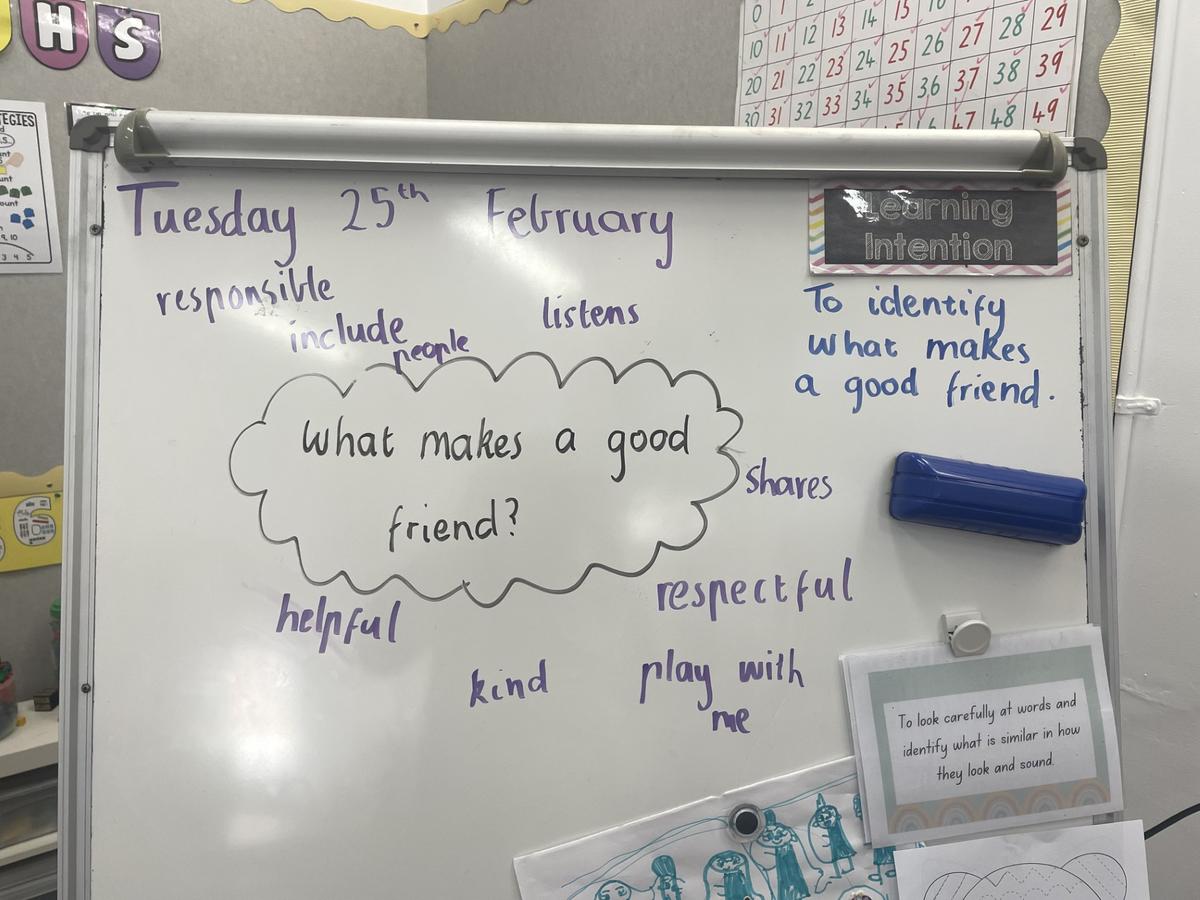 H S
0 1 2 13 14 15 16 17 18 19
10 11 12 23 24 25 26 27 28 29
20 21 22 33 34 35 36 37 38 39
30 31 32 47 48 49
TEGIES
Tuesday 25th February
Learning
Intention
responsible
include
people
listens
To identify
what makes
a good friend.
What makes a good
friend?
shares
helpful
respectful
kind
play with
me
To look carefully at words and
identify what is similar in how
they look and sound.
6